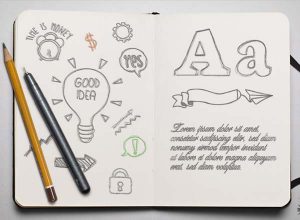 TIME IS MONEY
$
YES
GOOD
IDEA
!
A a
Lorem ipsum dolor sit amet,
consetetur sadipscing elitr, sed diam
nonumy eirmod tempor invidunt
ut labore et dolore magna aliquyam
erat, sed diam voluptua.